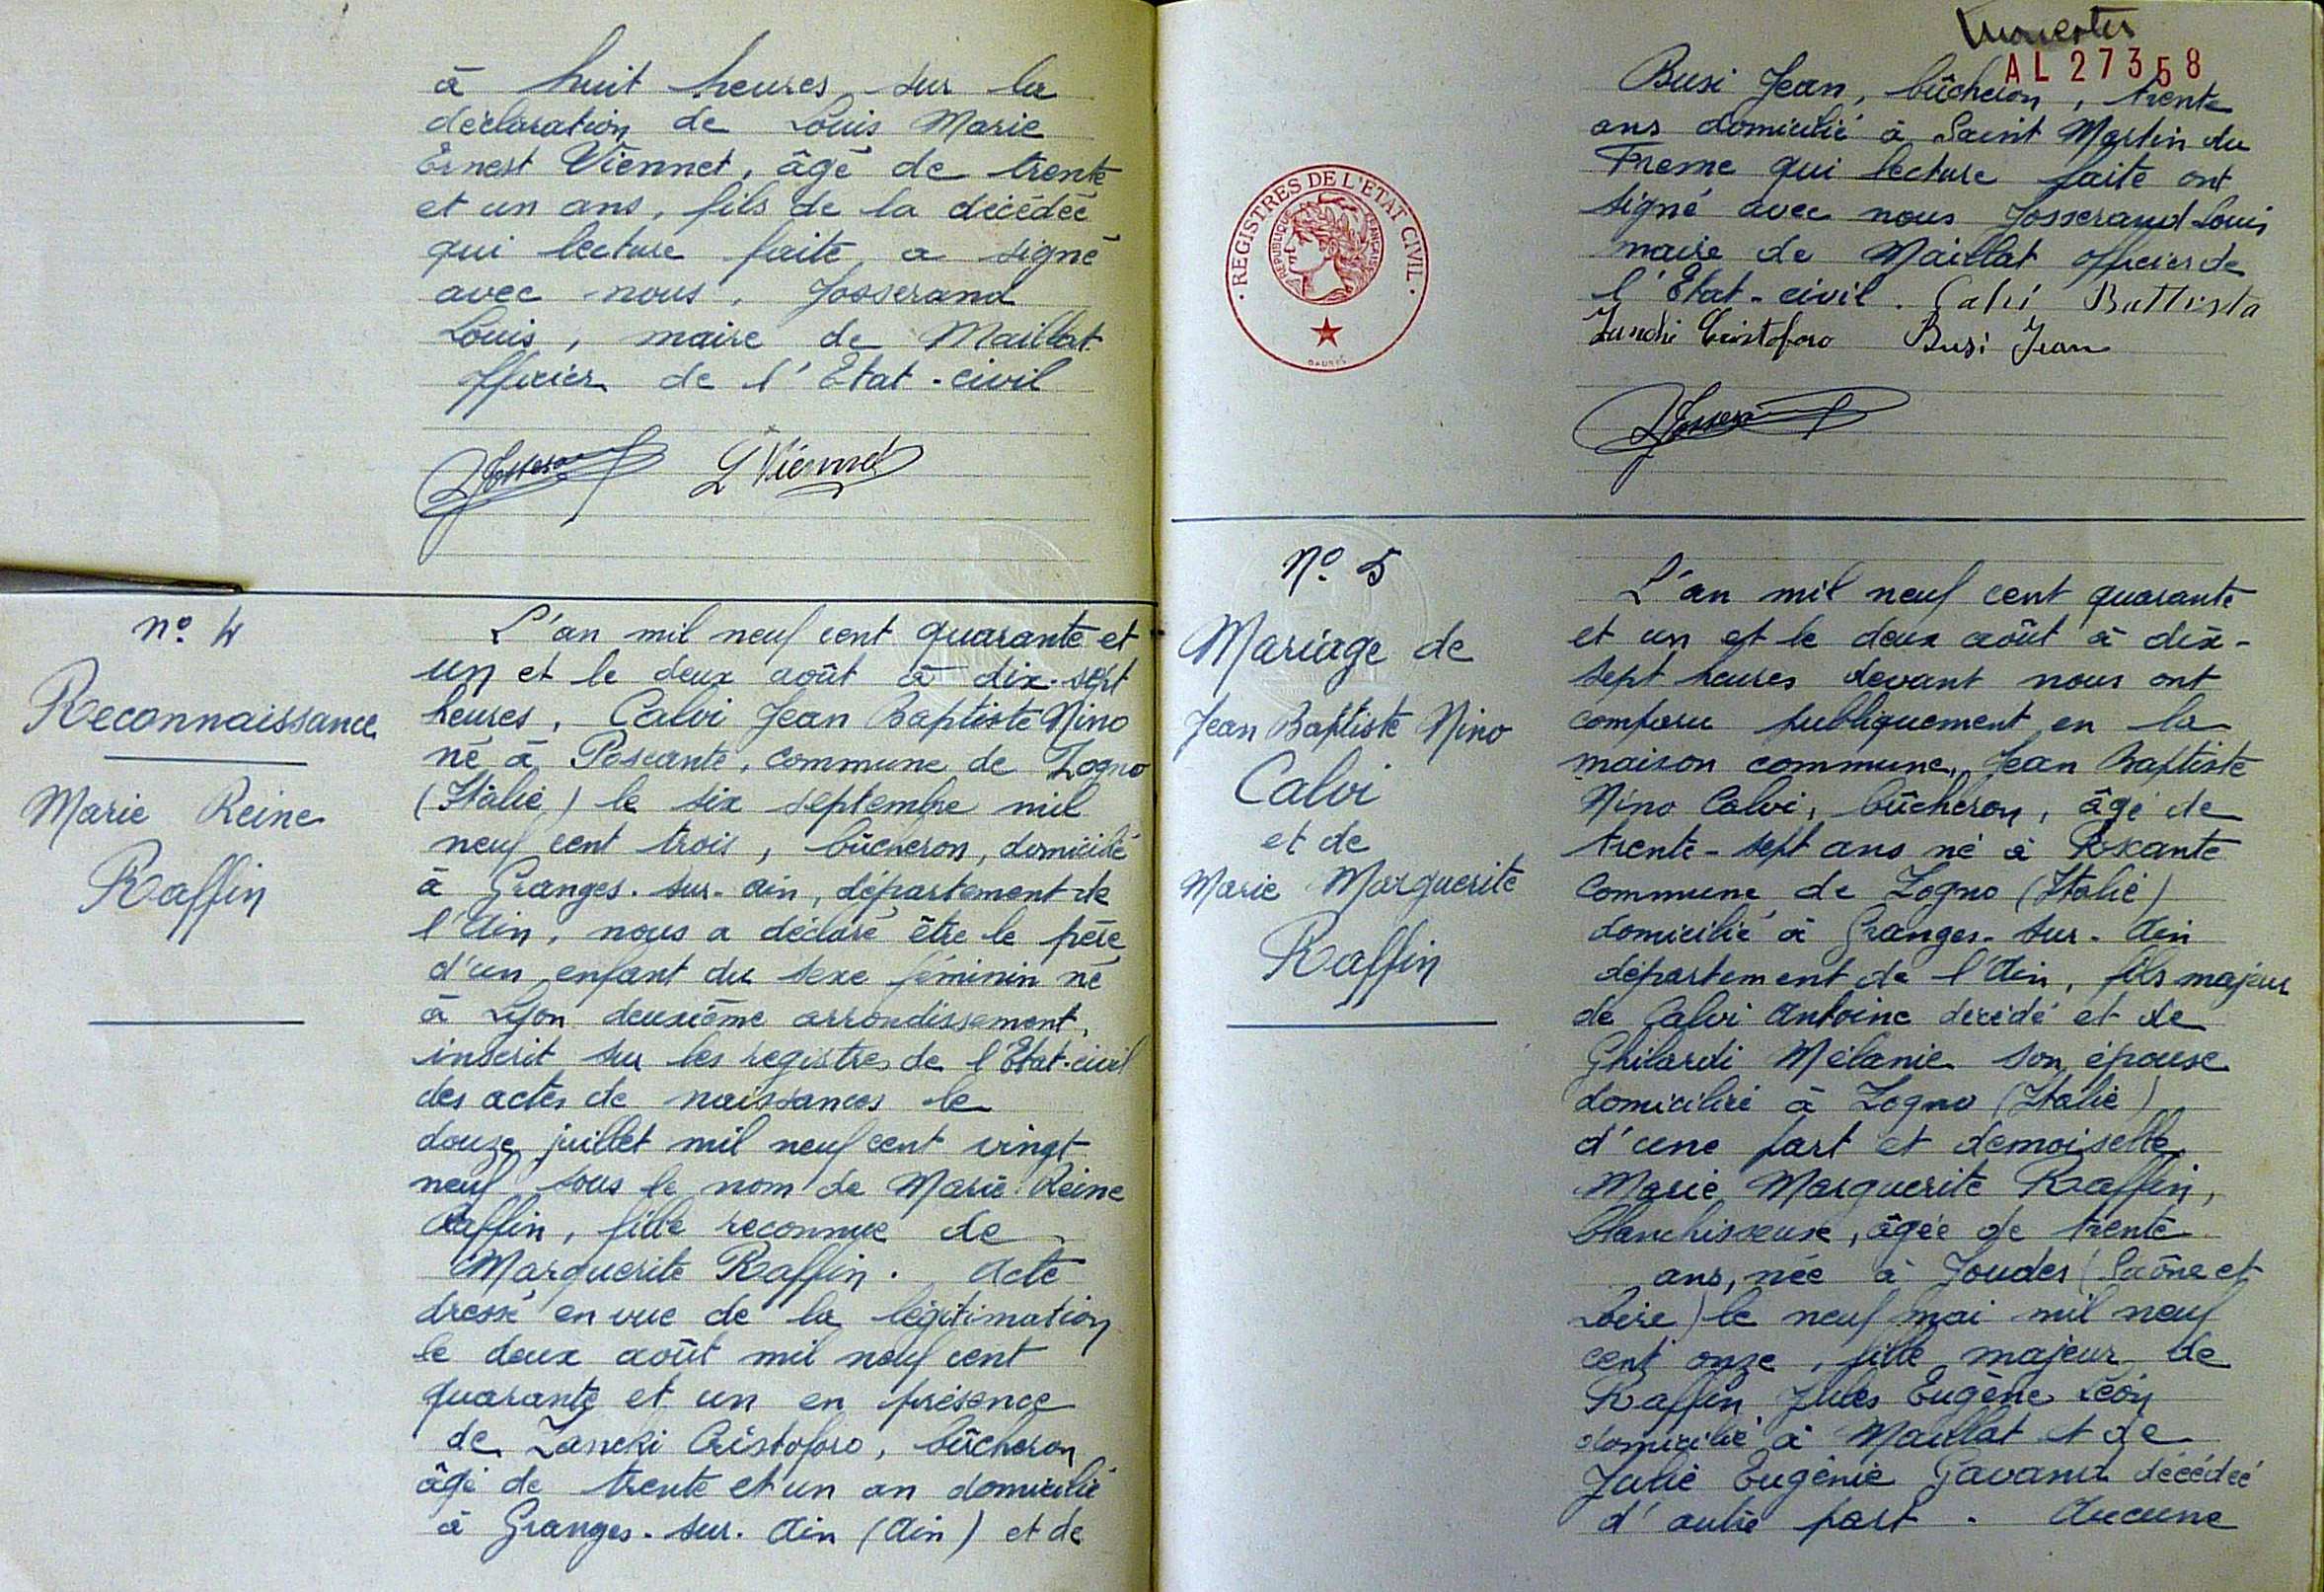 à huit heures sur la
déclaration de Louis Marie
Ernest Viennet, âgé de trente
et un ans, fils de la décédée
qui lecture faite a signé
avec nous, Josserand
Louis, maire de Maillat
officier de l'Etat-civil
L Viennet
n° 4
Reconnaissance
Marie Reine
Raffin
L'an mil neuf cent quarante et
un et le deux août à dix-sept
heures, Calvi Jean Baptiste Nino
né à Poscante, commune de Zogno
(Italie) le six septembre mil
neuf cent trois, bûcheron, domicilié
à Granges-sur-Ain, département de
l'Ain, nous a déclaré être le père
d'un enfant du sexe féminin né
à Lyon deuxième arrondissement,
inscrit sur les registres de l'Etat-civil
des actes de naissances le
douze juillet mil neuf cent vingt
neuf sous le nom de Marie Reine
Raffin, fille reconnue de
Marguerite Raffin. Acte
dressé en vue de la légitimation
le deux août mil neuf cent
quarante et un en présence
de Zanchi Cristoforo, bûcheron
âgé de trente et un an domicilié
à Granges-sur-Ain (Ain) et de
AL 27358
REGISTRES DE L'ETAT CIVIL
REPUBLIQUE FRANÇAISE
Busi Jean, bûcheron, trente
ans domicilié à Saint Martin du
Freme qui lecture faite ont
signé avec nous Josserand Louis
maire de Maillat officier de
l'Etat-civil. Calvi Battista
Zanchi Cristoforo Busi Jean
N° 5
Mariage de
Jean Baptiste Nino
Calvi
et de
Marie Marguerite
Raffin
L'an mil neuf cent quarante
et un et le deux août à dix-
sept heures devant nous ont
comparu publiquement en la
maison commune, Jean Baptiste
Nino Calvi, bûcheron, âgé de
trente-sept ans né à Poscante
commune de Zogno (Italie)
domicilié à Granges-sur-Ain
département de l'Ain, fils majeur
de Calvi Antoine décédé et de
Ghilardi Mélanie son épouse
domicilié à Zogno (Italie)
d'une part et demoiselle
Marie Marguerite Raffin,
blanchisseuse, âgée de trente
ans, née à Joudes (Saône et
Loire) le neuf mai mil neuf
cent onze, fille majeur de
Raffin Jules Eugène Léon
domicilié à Maillat et de
Julie Eugénie Gavand décédée
d'autre part. Aucune